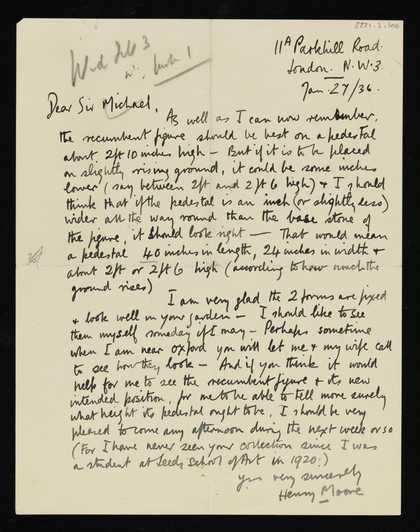 11A Parkhill Road.
London. N.W.3.
Jan. 27/36.
Wed Feb 3
Dear Sir Michael,
As well as I can now remember,
the recumbent figure should be best on a pedestal
about 2ft 10 inches high – But if it is to be placed
on slightly rising ground, it could be some inches
lower (say between 2ft and 2ft 6 high) & I should
think that if the pedestal is an inch (or slightly less)
wider all the way round than the base stone of
the figure, it should look right — That would mean
a pedestal 40 inches in length, 24 inches in width &
about 2ft or 2ft 6 high (according to how much the
ground rises)
I am very glad the 2 forms are fixed
& look well in your garden – I should like to see
them myself someday if I may – Perhaps sometime
when I am near Oxford you will let me & my wife call
to see how they look – And if you think it would
help for me to see the recumbent figure & its new
intended position, for me to be able to tell more surely
what height its pedestal ought to be, I should be very
pleased to come any afternoon during the next week or so
(For I have never seen your collection since I was
a student at Leeds School of Art in 1920!)
yrs very sincerely
Henry Moore